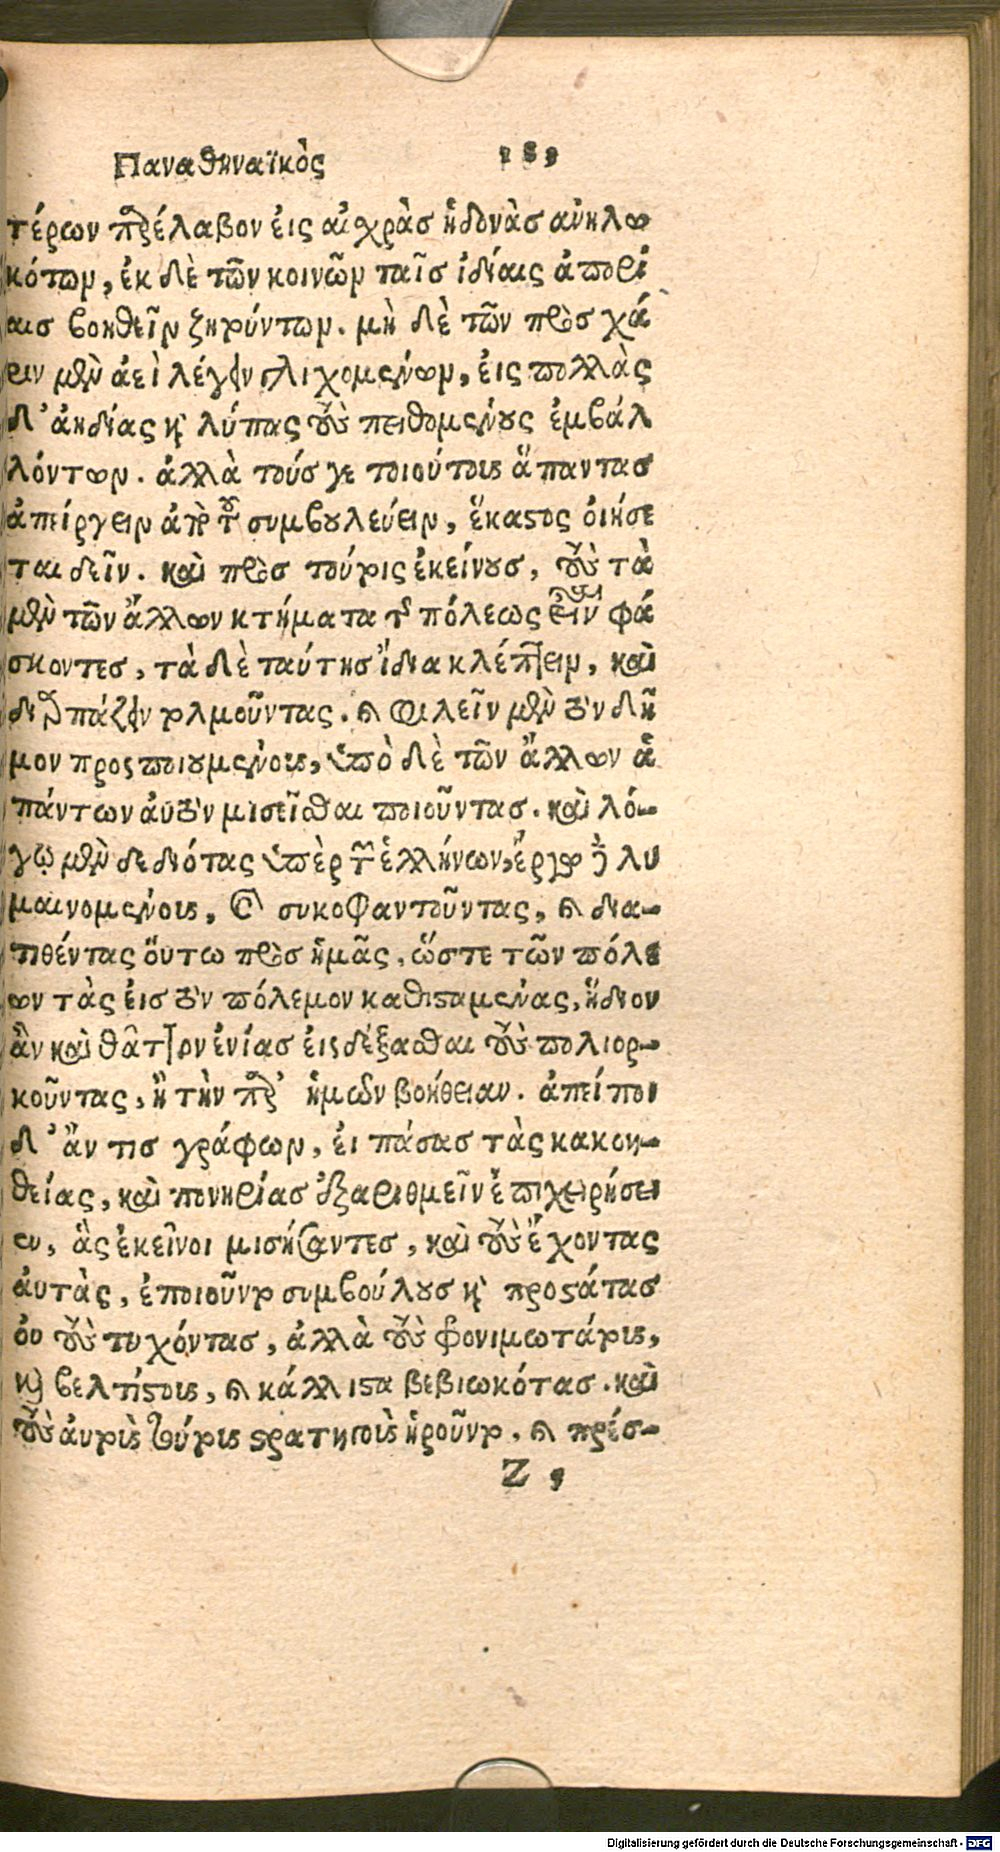 Παναθηναϊκὸς 183
τέρων παρέλαβον εἰς αἰσχρὰσ ἡδονὰσ ἀνηλω
κότων, ἐκ δὲ τῶν κοινῶν ταῖσ ἰδίαις ἀπορί
αισ βοηθεῖν ζητούντων. μὴ δὲ τῶν πρὸσ χά
ριν μὲν ἀεὶ λέγειν γλιχομένων, εἰς πολλὰς
δ' ἀηδίας καὶ λύπας τοὺς πειθομένους ἐμβάλ
λόντων. ἀλλὰ τούσ γε τοιούτους ἅπαντασ
ἀπείργειν ἀπὸ τοῦ συμβουλεύειν, ἕκαστος οἰήσε
ται δεῖν. καὶ πρὸσ τούτοις ἐκείνουσ, τοὺς τὰ
μὲν τῶν ἄλλων κτήματα τῆς πόλεως εἶναι φά
σκοντεσ, τὰ δὲ ταύτησ ἴδια κλέπτειν, καὶ
διαρπάζειν τολμοῦντας. καὶ φιλεῖν μὲν τὸν δῆ
μον προσποιουμένους, ὑπὸ δὲ τῶν ἄλλων ἁ
πάντων αὐτὸν μισεῖσθαι ποιοῦντασ. καὶ λό-
γῳ μὲν δεδιότας ὑπὲρ τῶν ἑλλήνων, ἔργῳ δὲ λυ
μαινομένους, καὶ συκοφαντοῦντας, καὶ δια-
τιθέντας οὕτω πρὸσ ἡμᾶς, ὥστε τῶν πόλε
ων τὰς εἰσ τὸν πόλεμον καθισταμένας, ἥδιον
ἂν καὶ θᾶττον ἐνίας εἰσδέξασθαι τοὺς πολιορ-
κοῦντας, ἢ τὴν παρ' ἡμῶν βοήθειαν. ἀπείποι
δ' ἄν τισ γράφων, εἰ πάσασ τὰς κακοη-
θείας, καὶ πονηρίασ ἐξαριθμεῖν ἐπιχειρήσει
εν, ἃς ἐκεῖνοι μισήσαντεσ, καὶ τοὺς ἔχοντας
αὐτὰς, ἐποιοῦντο συμβούλουσ καὶ προστάτασ
οὐ τοὺς τυχόντασ, ἀλλὰ τοὺς φρονιμωτάτους,
καὶ βελτίστους, καὶ κάλλιστα βεβιωκότασ. καὶ
τοὺς αὐτοὺς τούτους στρατηγοὺς ᾑροῦντο, καὶ πρέσ-
Z 3
Digitalisierung gefördert durch die Deutsche Forschungsgemeinschaft - DFG